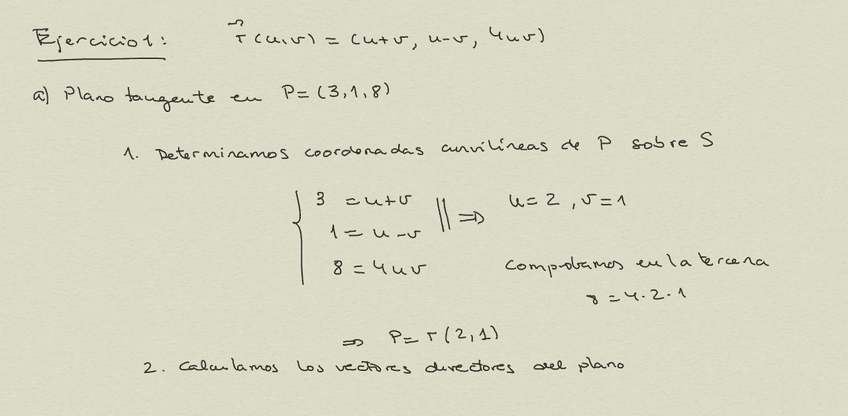 Ejercicio 1: r⃗(u,v) = (u+v, u-v, 4uv)
a) Plano tangente en P=(3,1,8)
1. Determinamos coordenadas curvilíneas de P sobre S
3 = u+v
1 = u-v
8 = 4uv
⇒ u=2, v=1
Comprobamos en la tercera
8 = 4·2·1
⇒ P= r(2,1)
2. Calculamos los vectores directores del plano